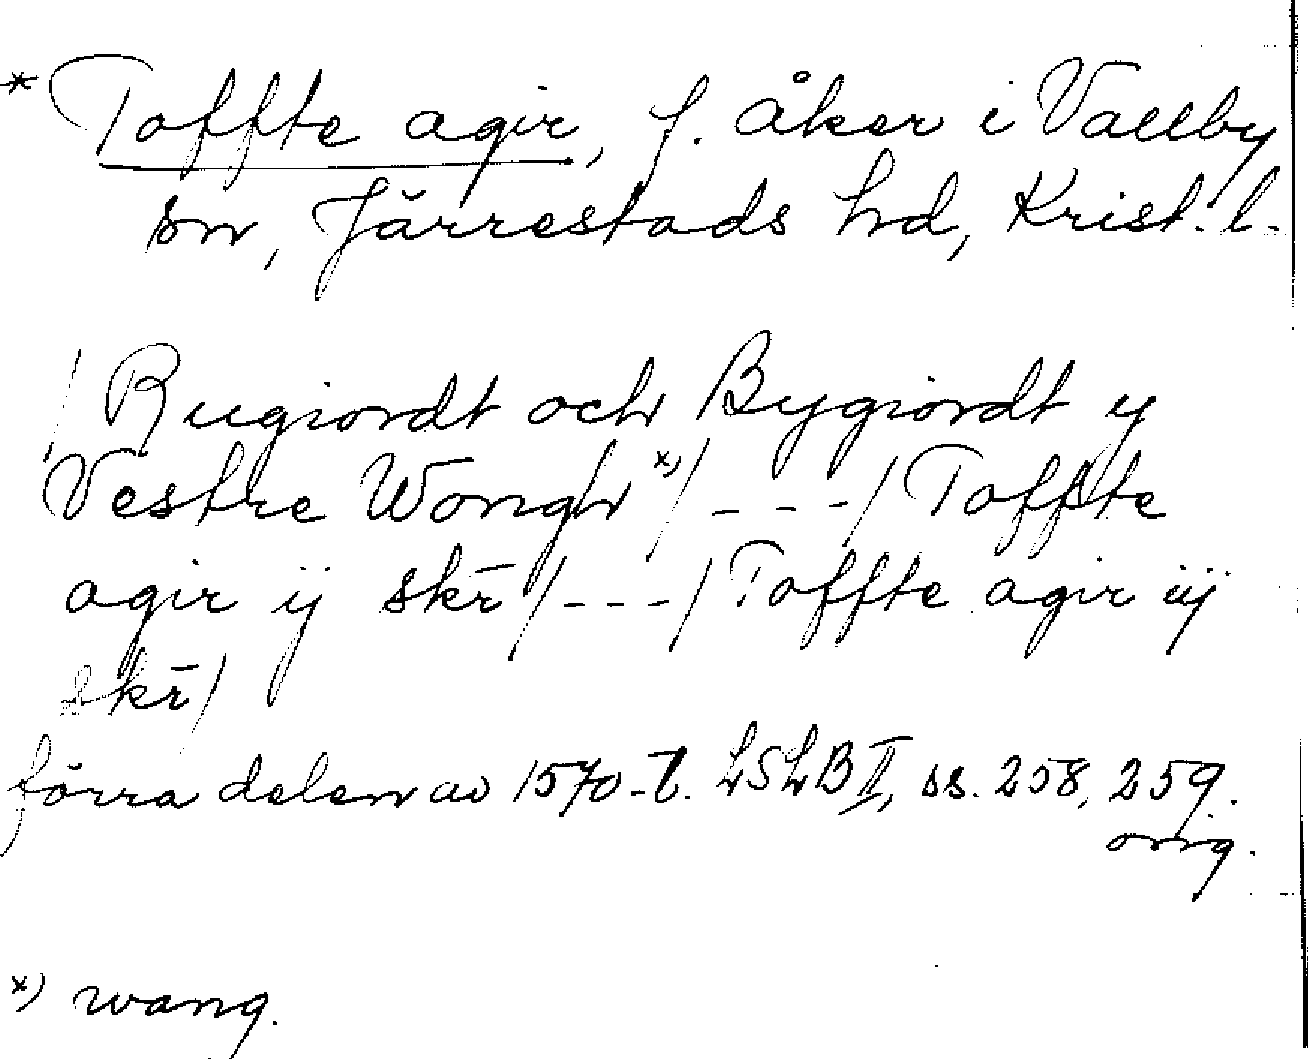 * Toffte agir, f. åker i Vallby
sn, Järrestads hd, Krist. l.
/ Rugiordt och Bygiordt y
Vestre Wongh x) / - - - / Toffte
agir ij skr̄ / - - - / Toffte agir iij
skr̄ /
förra delen av 1570-t. LSLB II, ss. 258, 259.
orig.
x) wang.